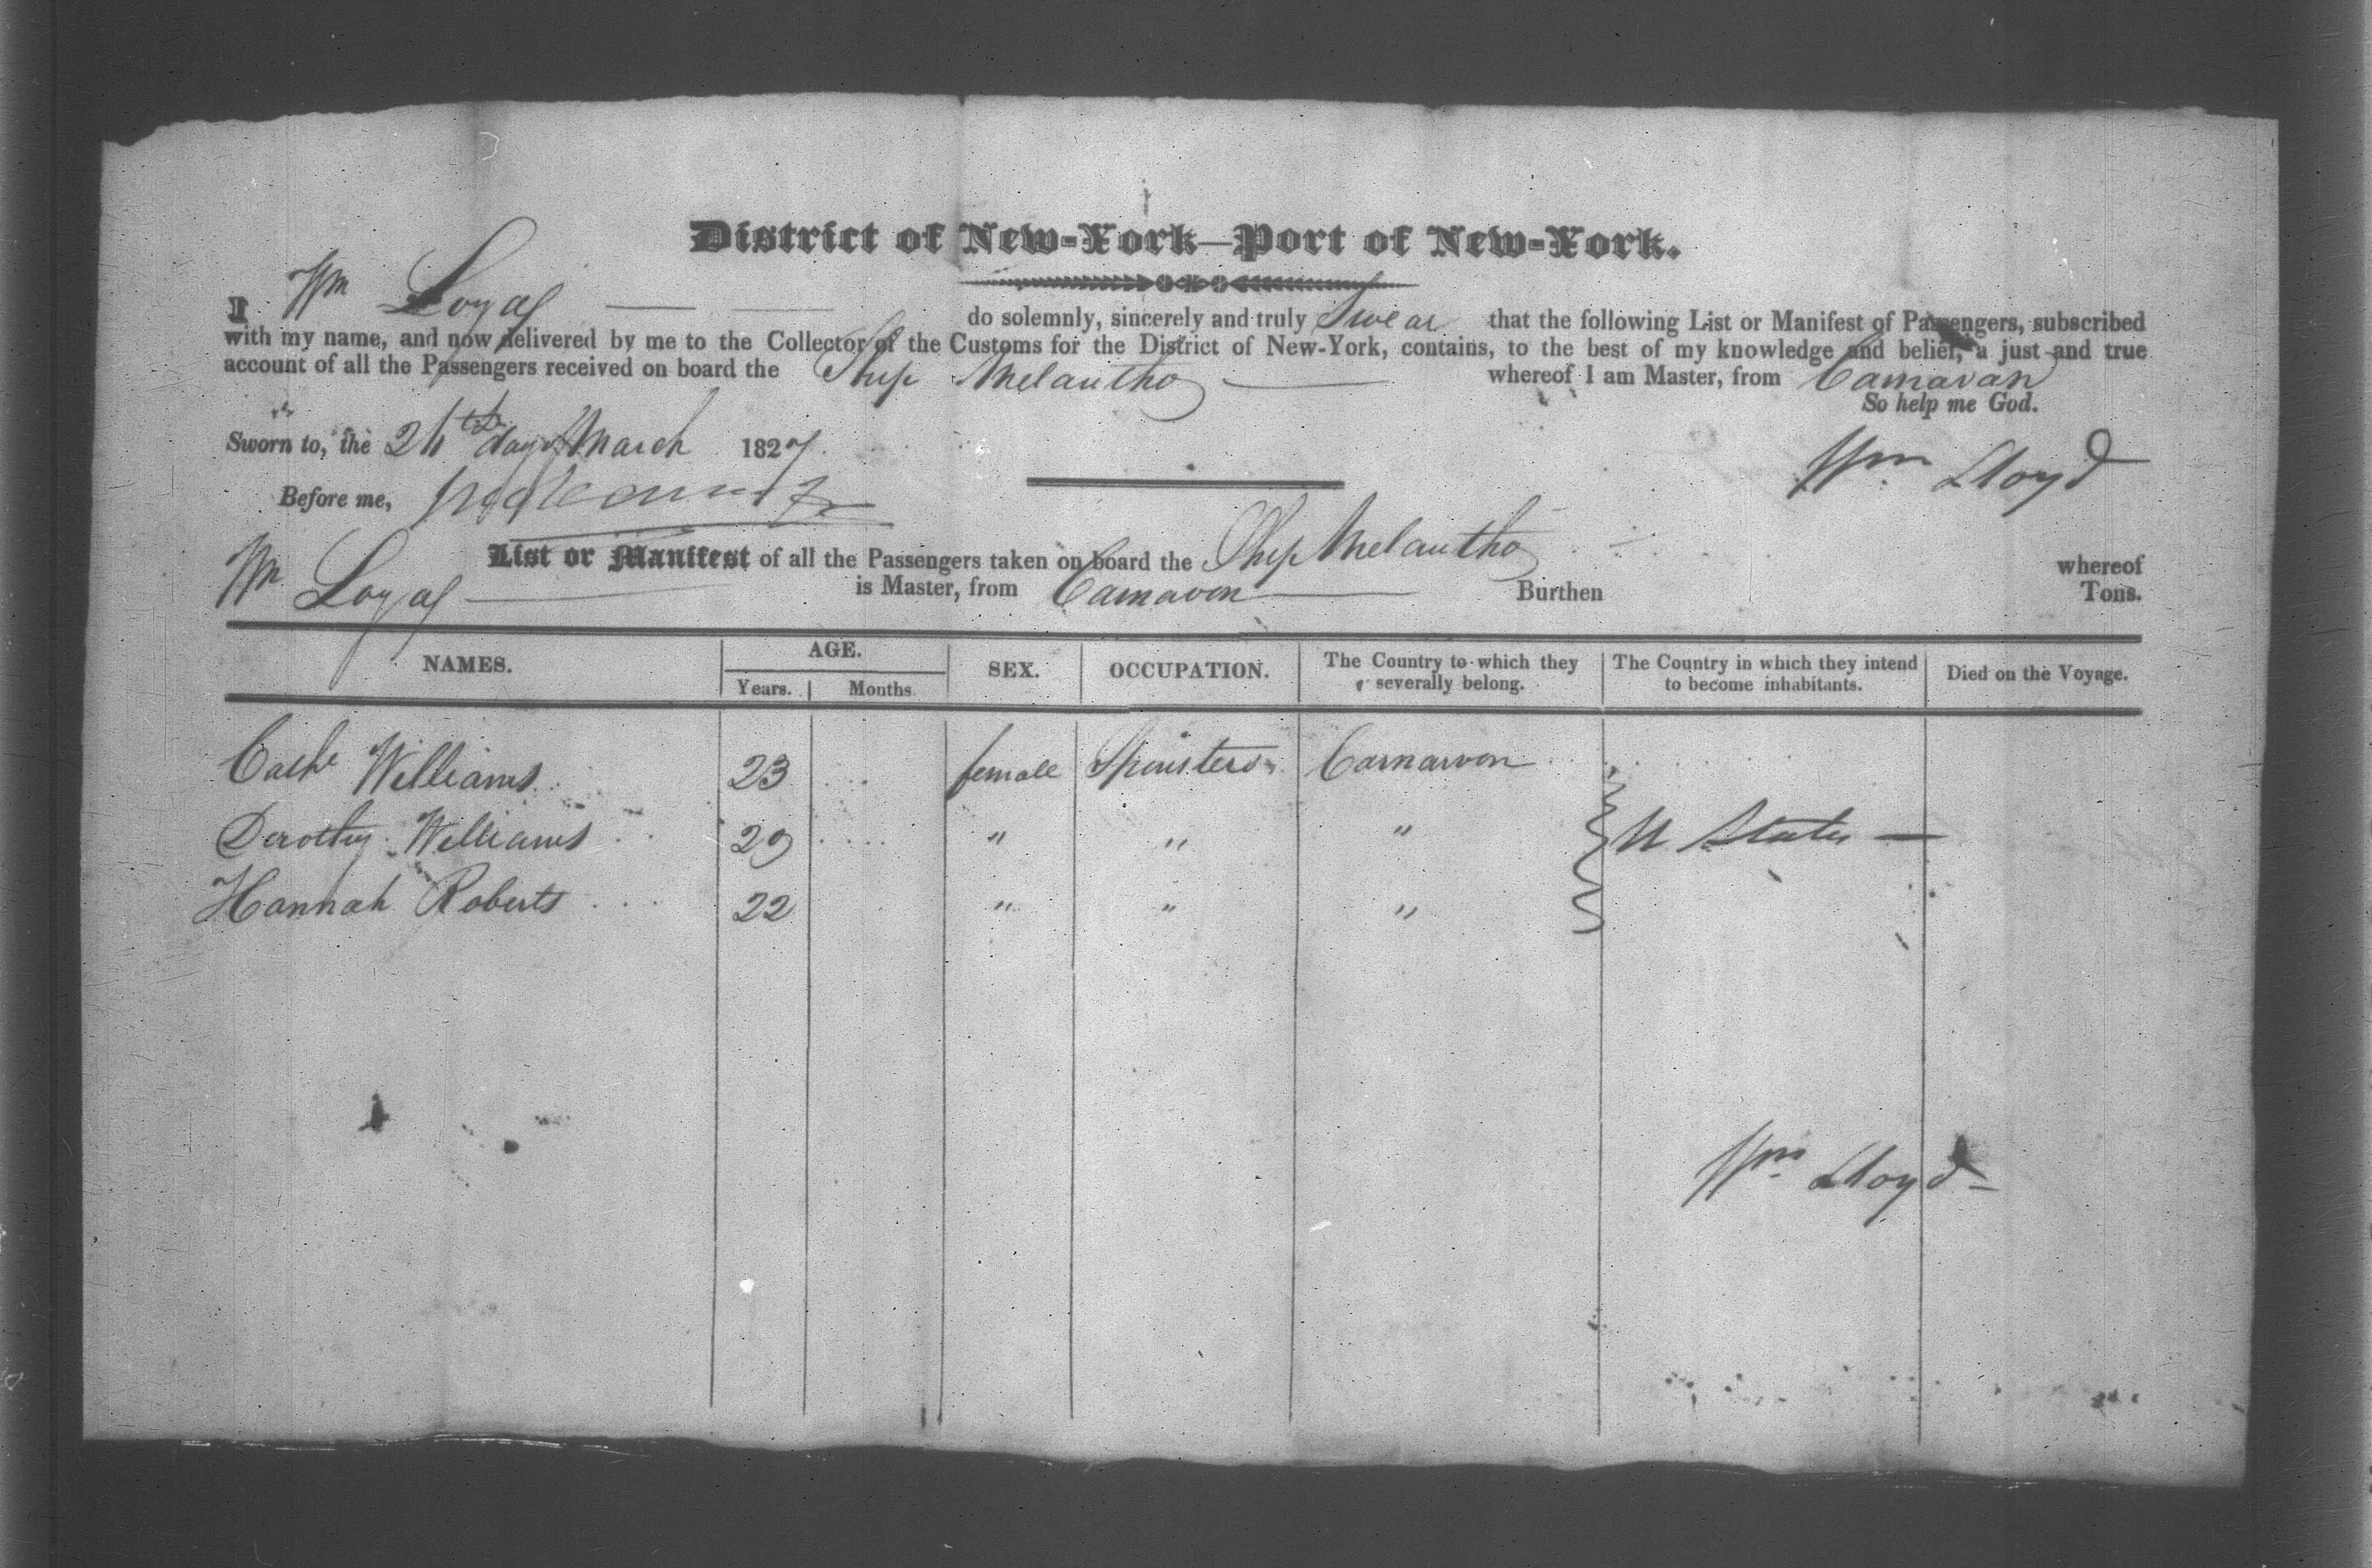 District of New-York—Port of New-York.
I Wm Loyd do solemnly, sincerely and truly Swear that the following List or Manifest of Passengers, subscribed
with my name, and now delivered by me to the Collector of the Customs for the District of New-York, contains, to the best of my knowledge and belief, a just and true
account of all the Passengers received on board the Ship Melantho whereof I am Master, from Carnavan
So help me God.
Sworn to, the 24th day of March 1827
Before me,
Wm Lloyd
List or Manifest of all the Passengers taken on board the Ship Melantho whereof
Wm Loyd is Master, from Carnavon Burthen Tons.
NAMES. AGE. Years. Months. SEX. OCCUPATION. The Country to which they severally belong. The Country in which they intend to become inhabitants. Died on the Voyage.
Cathe Williams 23 female Spinsters Carnarvon
Dorothy Williams 29 " " " U States —
Hannah Roberts 22 " " "
Wm Lloyd